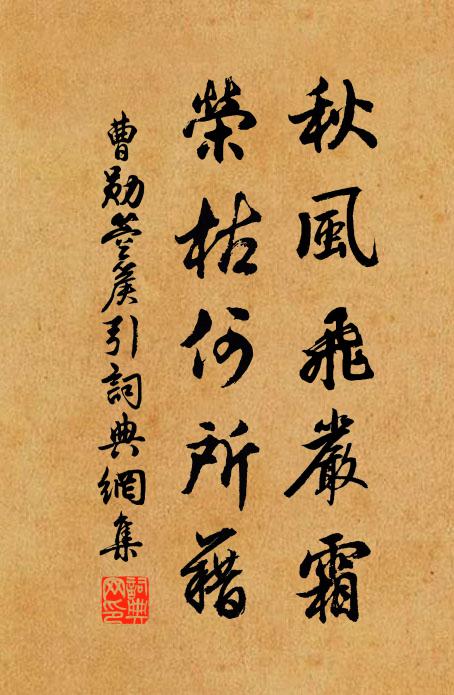 秋風飛嚴霜
榮枯何所藉
曹勛箜篌引詞典網集
詞典網印